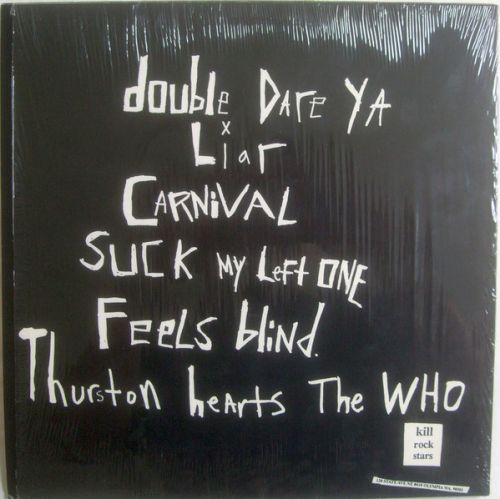 double Dare YA
Liar
CARNiVAL
SUCK MY Left ONE
Feels blind.
Thurston hearts The WHO
kill
rock
stars
120 STATE AVE. NE #418 OLYMPIA WA. 98501